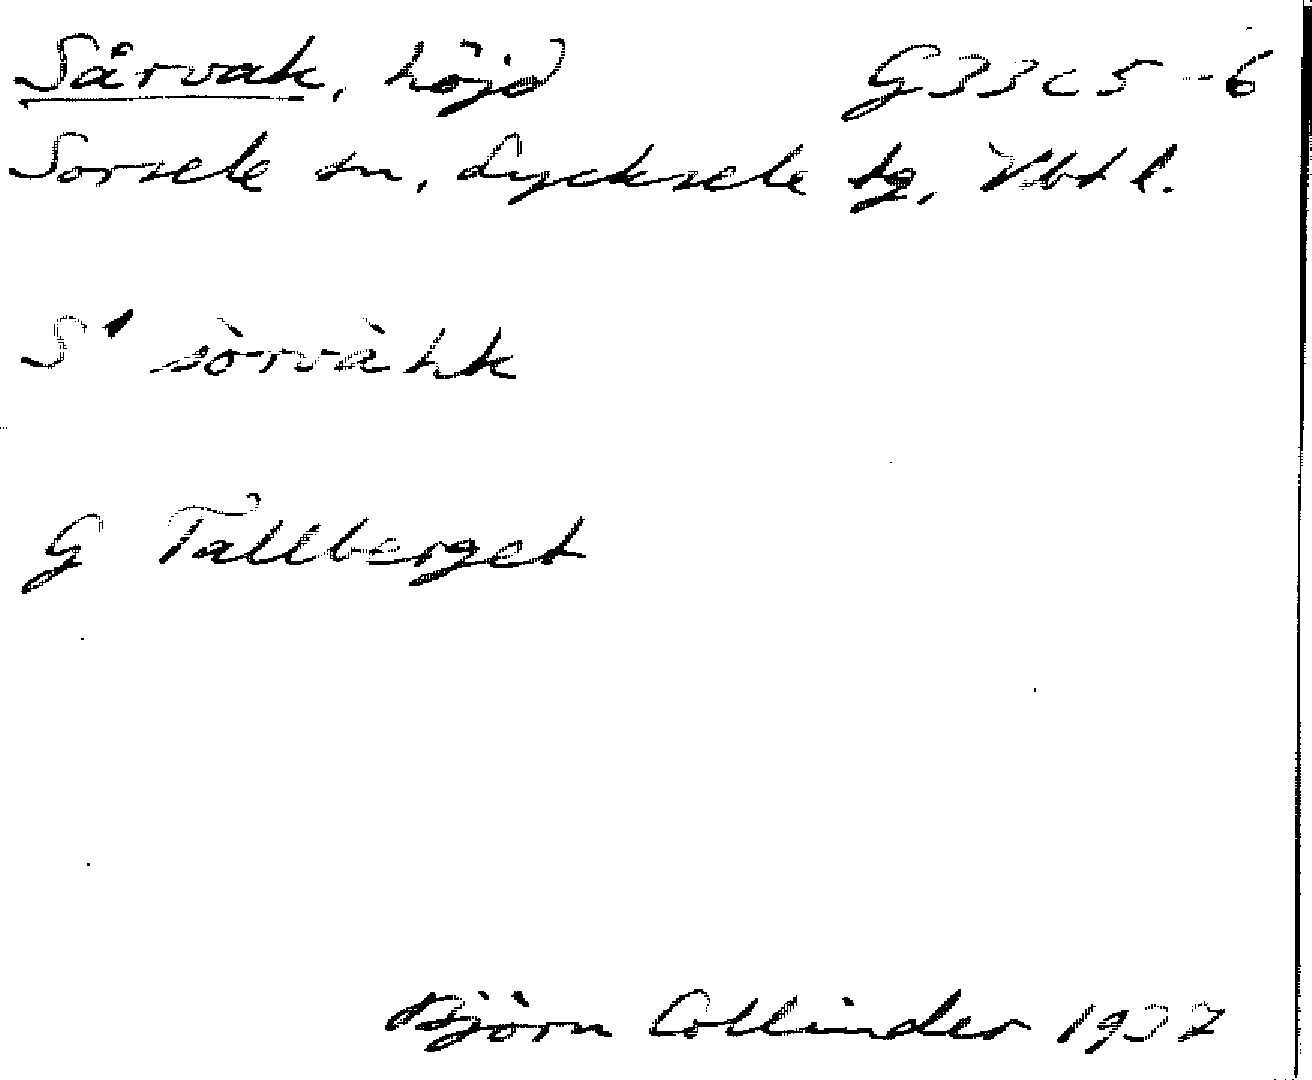 Sårvak, höjd G33c5-6
Sorsele sn, Lycksele tg, Vbt l.
S' sòrvàhk
G Tallberget
Björn Collinder 1937